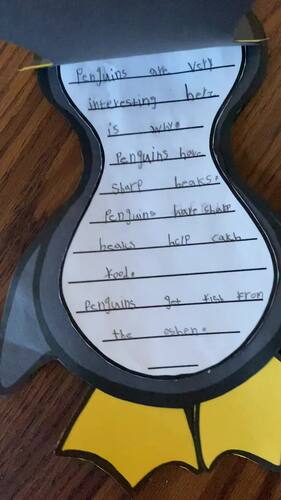 Penguins are very
interesting here
is why.
Penguins have
sharp beaks.
Penguins have sharp
beaks help catch
food.
Penguins get fish from
the oshen.